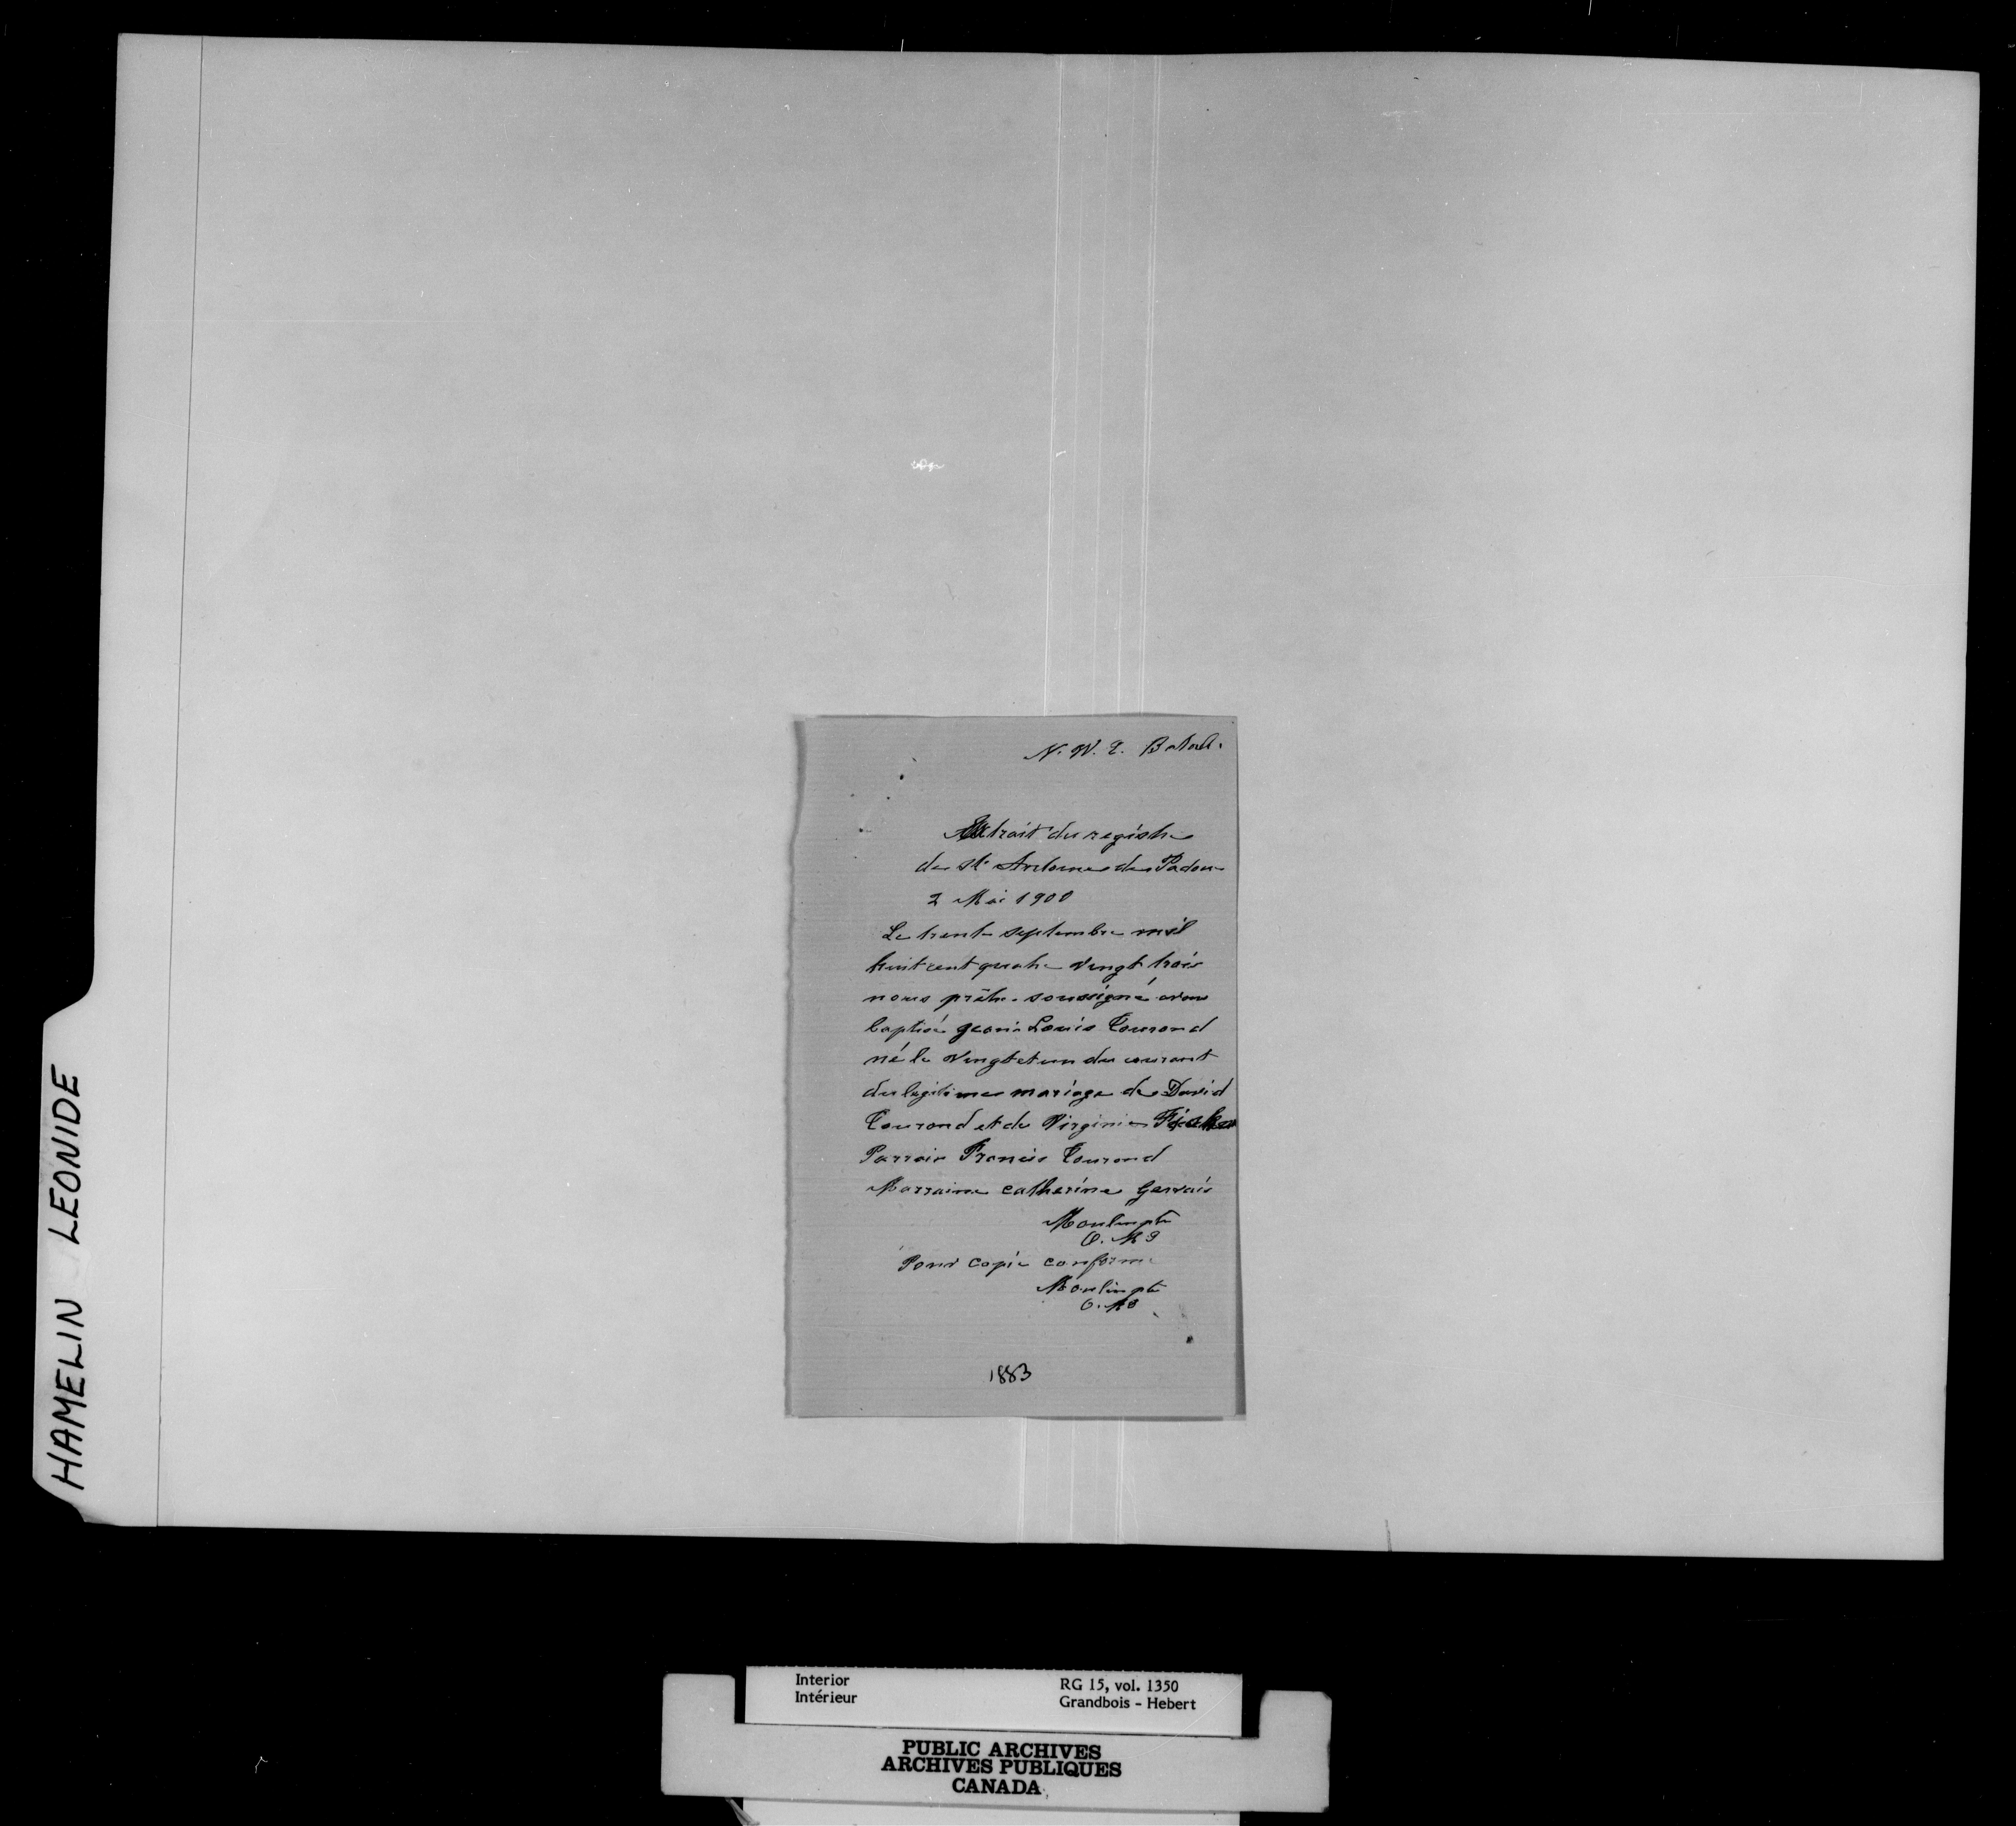 N. W. T. Batoche
Extrait du registre
de St Antoine de Padoue
2 Mai 1900
Le trente septembre mil
huit cent quatre vingt trois
nous prêtre soussigné avons
baptisé Louis Tourond
né le vingt et un du courant
du legitime mariage de David
Tourond et de Virginie Fischer
Parrain Francis Tourond
Marraine catherine Gervais
Moulin ptr
O. M I
Pour copie conforme
Moulin ptr
O. M I
1883
HAMELIN LEONIDE
Interior
Intérieur
RG 15, vol. 1350
Grandbois - Hebert
PUBLIC ARCHIVES
ARCHIVES PUBLIQUES
CANADA